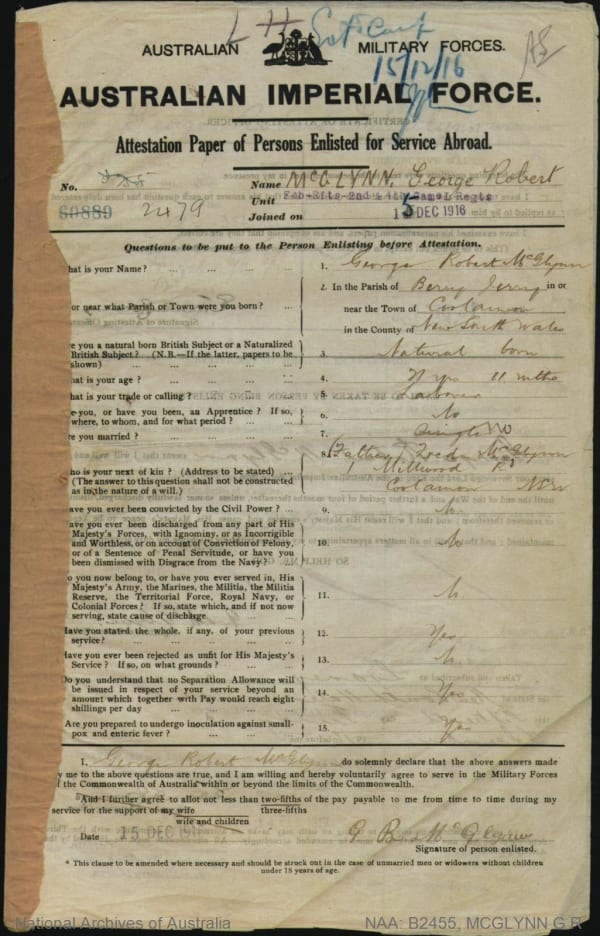 L H
15/12/16
AUSTRALIAN MILITARY FORCES.
AUSTRALIAN IMPERIAL FORCE.
Attestation Paper of Persons Enlisted for Service Abroad.
No. 60880 2479
Name McGLYNN. George Robert
Unit Feb-Rfts-2nd
Joined on 15 DEC 1916
Questions to be put to the Person Enlisting before Attestation.
hat is your Name? ... ... ... ... 1. George Robert McGlynn
or near what Parish or Town were you born? ... 2. In the Parish of Berry Jerry in or
near the Town of Coolamon
in the County of New South Wales
re you a natural born British Subject or a Naturalized
British Subject? (N.B.—If the latter, papers to be
shown) ... ... ... ... 3. Natural born
hat is your age? ... ... ... ... 4. yrs 11 mths
hat is your trade or calling? ... ... ... 5. Labourer
re you, or have you been, an Apprentice? If so,
where, to whom, and for what period? ... ... 6. No
re you married? ... ... ... ... 7. Single No
ho is your next of kin? (Address to be stated) ... 8. (Father) McGlynn
(The answer to this question shall not be construed Millwood Rd
as in the nature of a will.) Coolamon NSW
ave you ever been convicted by the Civil Power? ... 9. No
ave you ever been discharged from any part of His
Majesty's Forces, with Ignominy, or as Incorrigible
and Worthless, or on account of Conviction of Felony,
or of a Sentence of Penal Servitude, or have you
been dismissed with Disgrace from the Navy? ... 10. No
o you now belong to, or have you ever served in, His
Majesty's Army, the Marines, the Militia, the Militia
Reserve, the Territorial Force, Royal Navy, or
Colonial Forces? If so, state which, and if not now
serving, state cause of discharge. ... ... 11. No
ave you stated the whole, if any, of your previous
service? ... ... ... ... 12. Yes
ave you ever been rejected as unfit for His Majesty's
Service? If so, on what grounds? ... ... 13. No
Do you understand that no Separation Allowance will
be issued in respect of your service beyond an
amount which together with Pay would reach eight
shillings per day ... ... ... 14. Yes
Are you prepared to undergo inoculation against small-
pox and enteric fever? ... ... ... 15. Yes
I, George Robert McGlynn do solemnly declare that the above answers made
by me to the above questions are true, and I am willing and hereby voluntarily agree to serve in the Military Forces
of the Commonwealth of Australia within or beyond the limits of the Commonwealth.
*And I further agree to allot not less than two-fifths of the pay payable to me from time to time during my
three-fifths
service for the support of my wife
wife and children
Date 15 DEC 1916
G R McGlynn
Signature of person enlisted.
* This clause to be amended where necessary and should be struck out in the case of unmarried men or widowers without children
under 18 years of age.
National Archives of Australia NAA: B2455, MCGLYNN G R